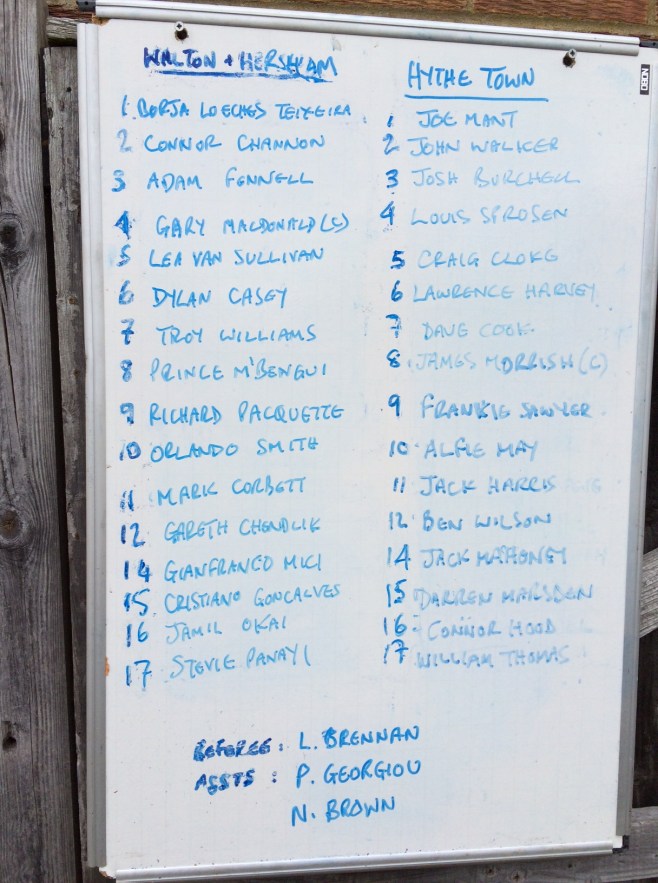 WALTON + HERSHAM
1 BORJA LOECHES TEIXEIRA
2 CONNOR CHANNON
3 ADAM FENNELL
4 GARY MACDONALD (C)
5 LEA VAN SULLIVAN
6 DYLAN CASEY
7 TROY WILLIAMS
8 PRINCE M'BENGUI
9 RICHARD PACQUETTE
10 ORLANDO SMITH
11 MARK CORBETT
12 GARETH CHENDLIK
14 GIANFRANCO MICI
15 CRISTIANO GONCALVES
16 JAMIL OKAI
17 STEVIE PANAYI
HYTHE TOWN
1 JOE MANT
2 JOHN WALKER
3 JOSH BURCHELL
4 LOUIS SPROSEN
5 CRAIG CLOKE
6 LAWRENCE HARVEY
7 DAVE COOK
8 JAMES MORRISH (C)
9 FRANKIE SAWYER
10 ALFIE MAY
11 JACK HARRIS
12 BEN WILSON
14 JACK MAHONEY
15 DARREN MARSDEN
16 CONNOR HOOD
17 WILLIAM THOMAS
REFEREE: L. BRENNAN
ASSTS: P. GEORGIOU
N. BROWN
NOBO